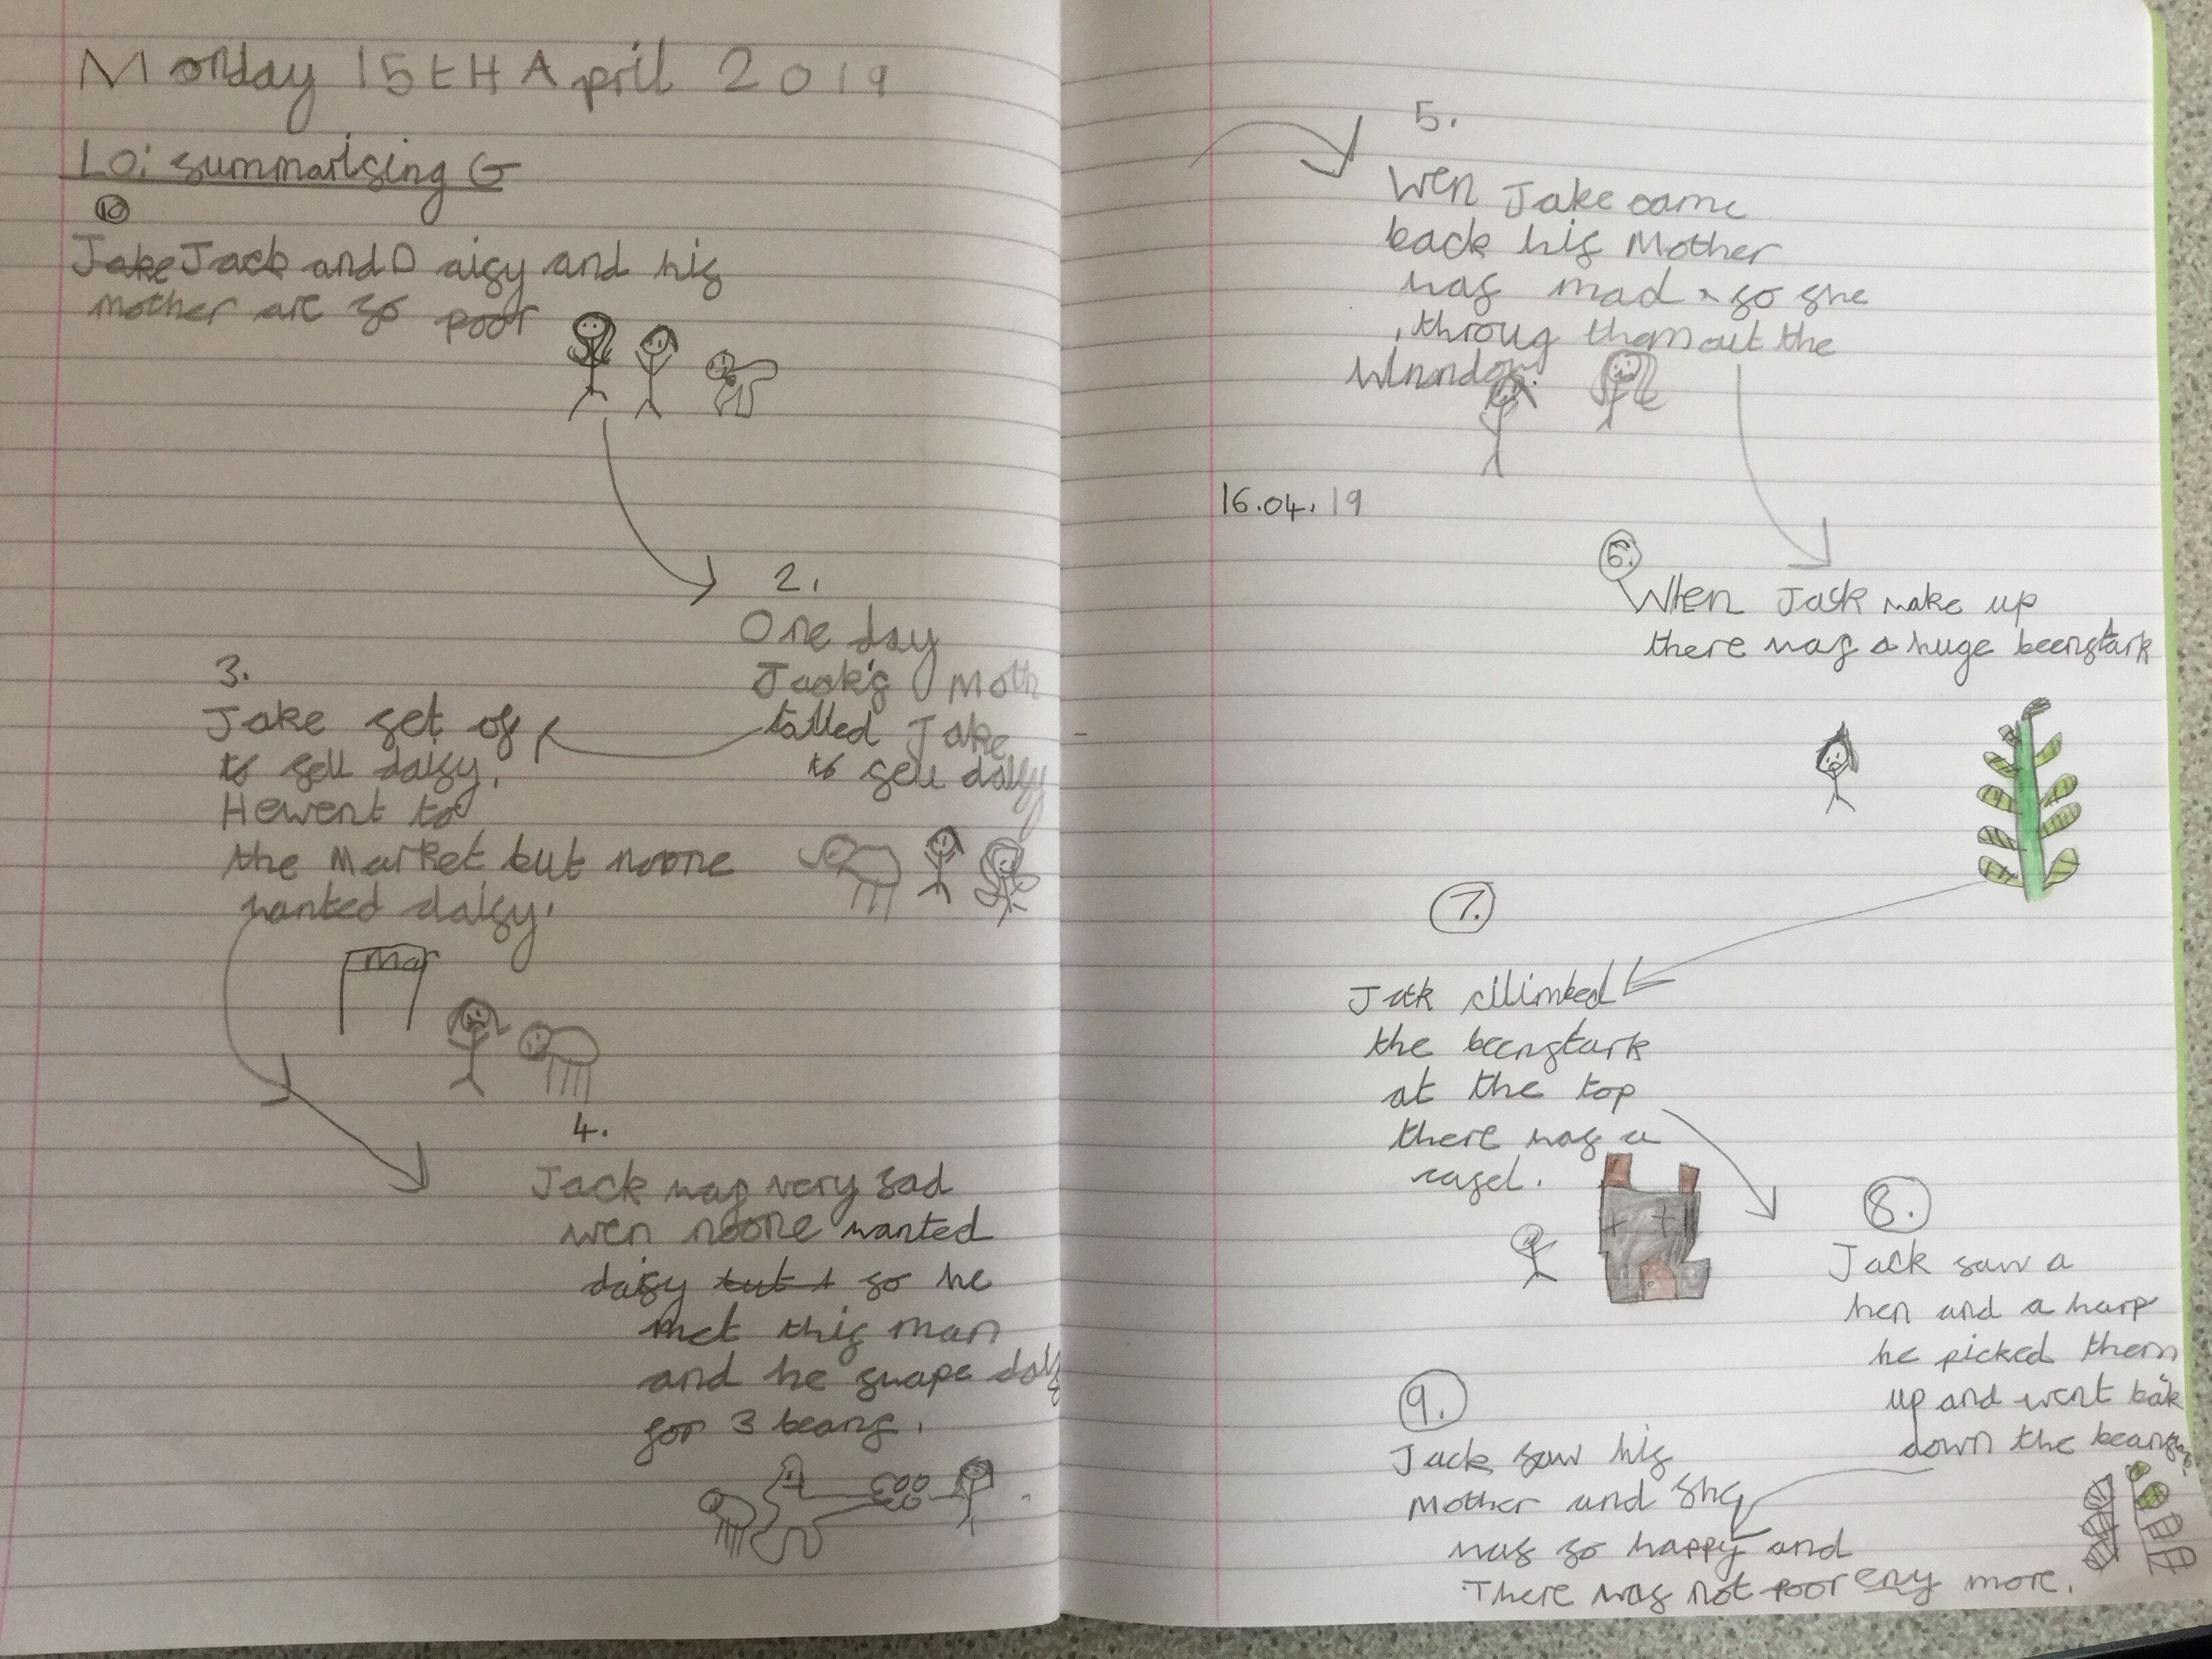 Monday 15tH April 2019
LO: summarising G
Jake Jack and Daisy and his
mother are so poor
2.
One day
Jack's Moth
talled Jake
to sell daisy
3.
Jake set of
to sell daisy.
He went to
the Market but noone
wanted daisy.
Mar
4.
Jack was very sad
wen noone wanted
daisy but so he
met this man
and he swape dais
for 3 beans.
5.
Wen Jake came
back his Mother
was mad so she
throug them out the
16.04.19
6.
When Jack wake up
there was a huge beenstark
7.
Jack clilimbed
the beenstark
at the top
there was a
casel.
8.
Jack saw a
hen and a harp
he picked them
up and went bak
down the beans
9.
Jack saw his
Mother and she
was so happy and
There was not poor eny more.